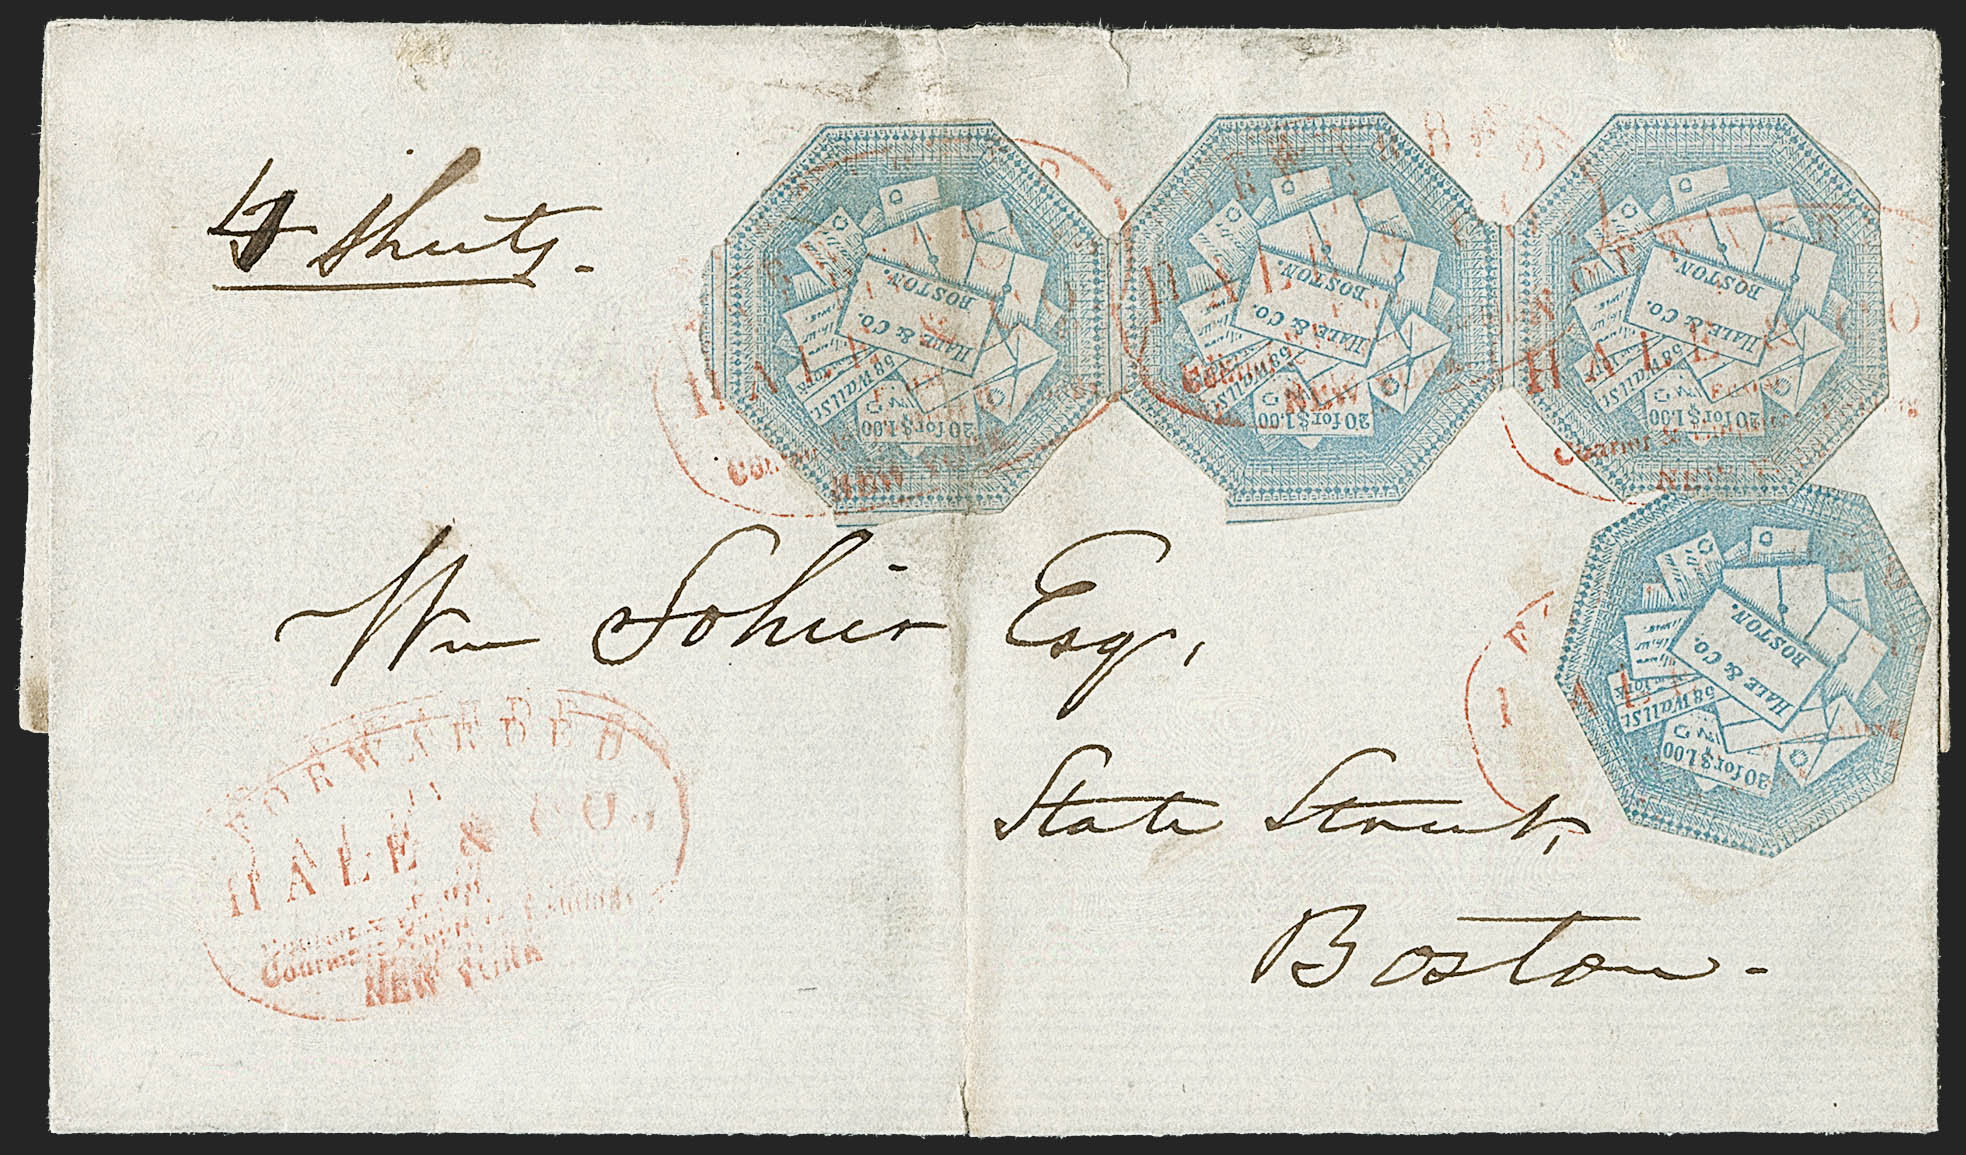 4 Sheets.
HALE & CO.
BOSTON.
58 Wall St
20 for $1.00
HALE & CO.
BOSTON.
58 Wall St
20 for $1.00
HALE & CO.
BOSTON.
58 Wall St
20 for $1.00
HALE & CO.
BOSTON.
58 Wall St
20 for $1.00
HALE
NEW YORK
HALE
NEW
HALE
Courier &
NEW
Wm Sohier Esq,
State Street,
Boston-
FORWARDED
HALE & CO.,
NEW YORK